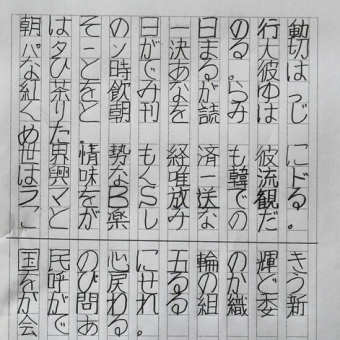 朝はその日一日の行動
パターンが決まる大切
なひと時である。彼は
紅茶を飲みながらゆっ
くりと朝刊を読みはじ
めた
世界情勢も経済も彼に
は興味なん唯一韓流ド
ラマをBS放送で観る
ことが楽しみなのだ。
国民の心に五輪の輝き
を呼び戻せるのかどう
かが問われる組織委新
会である。